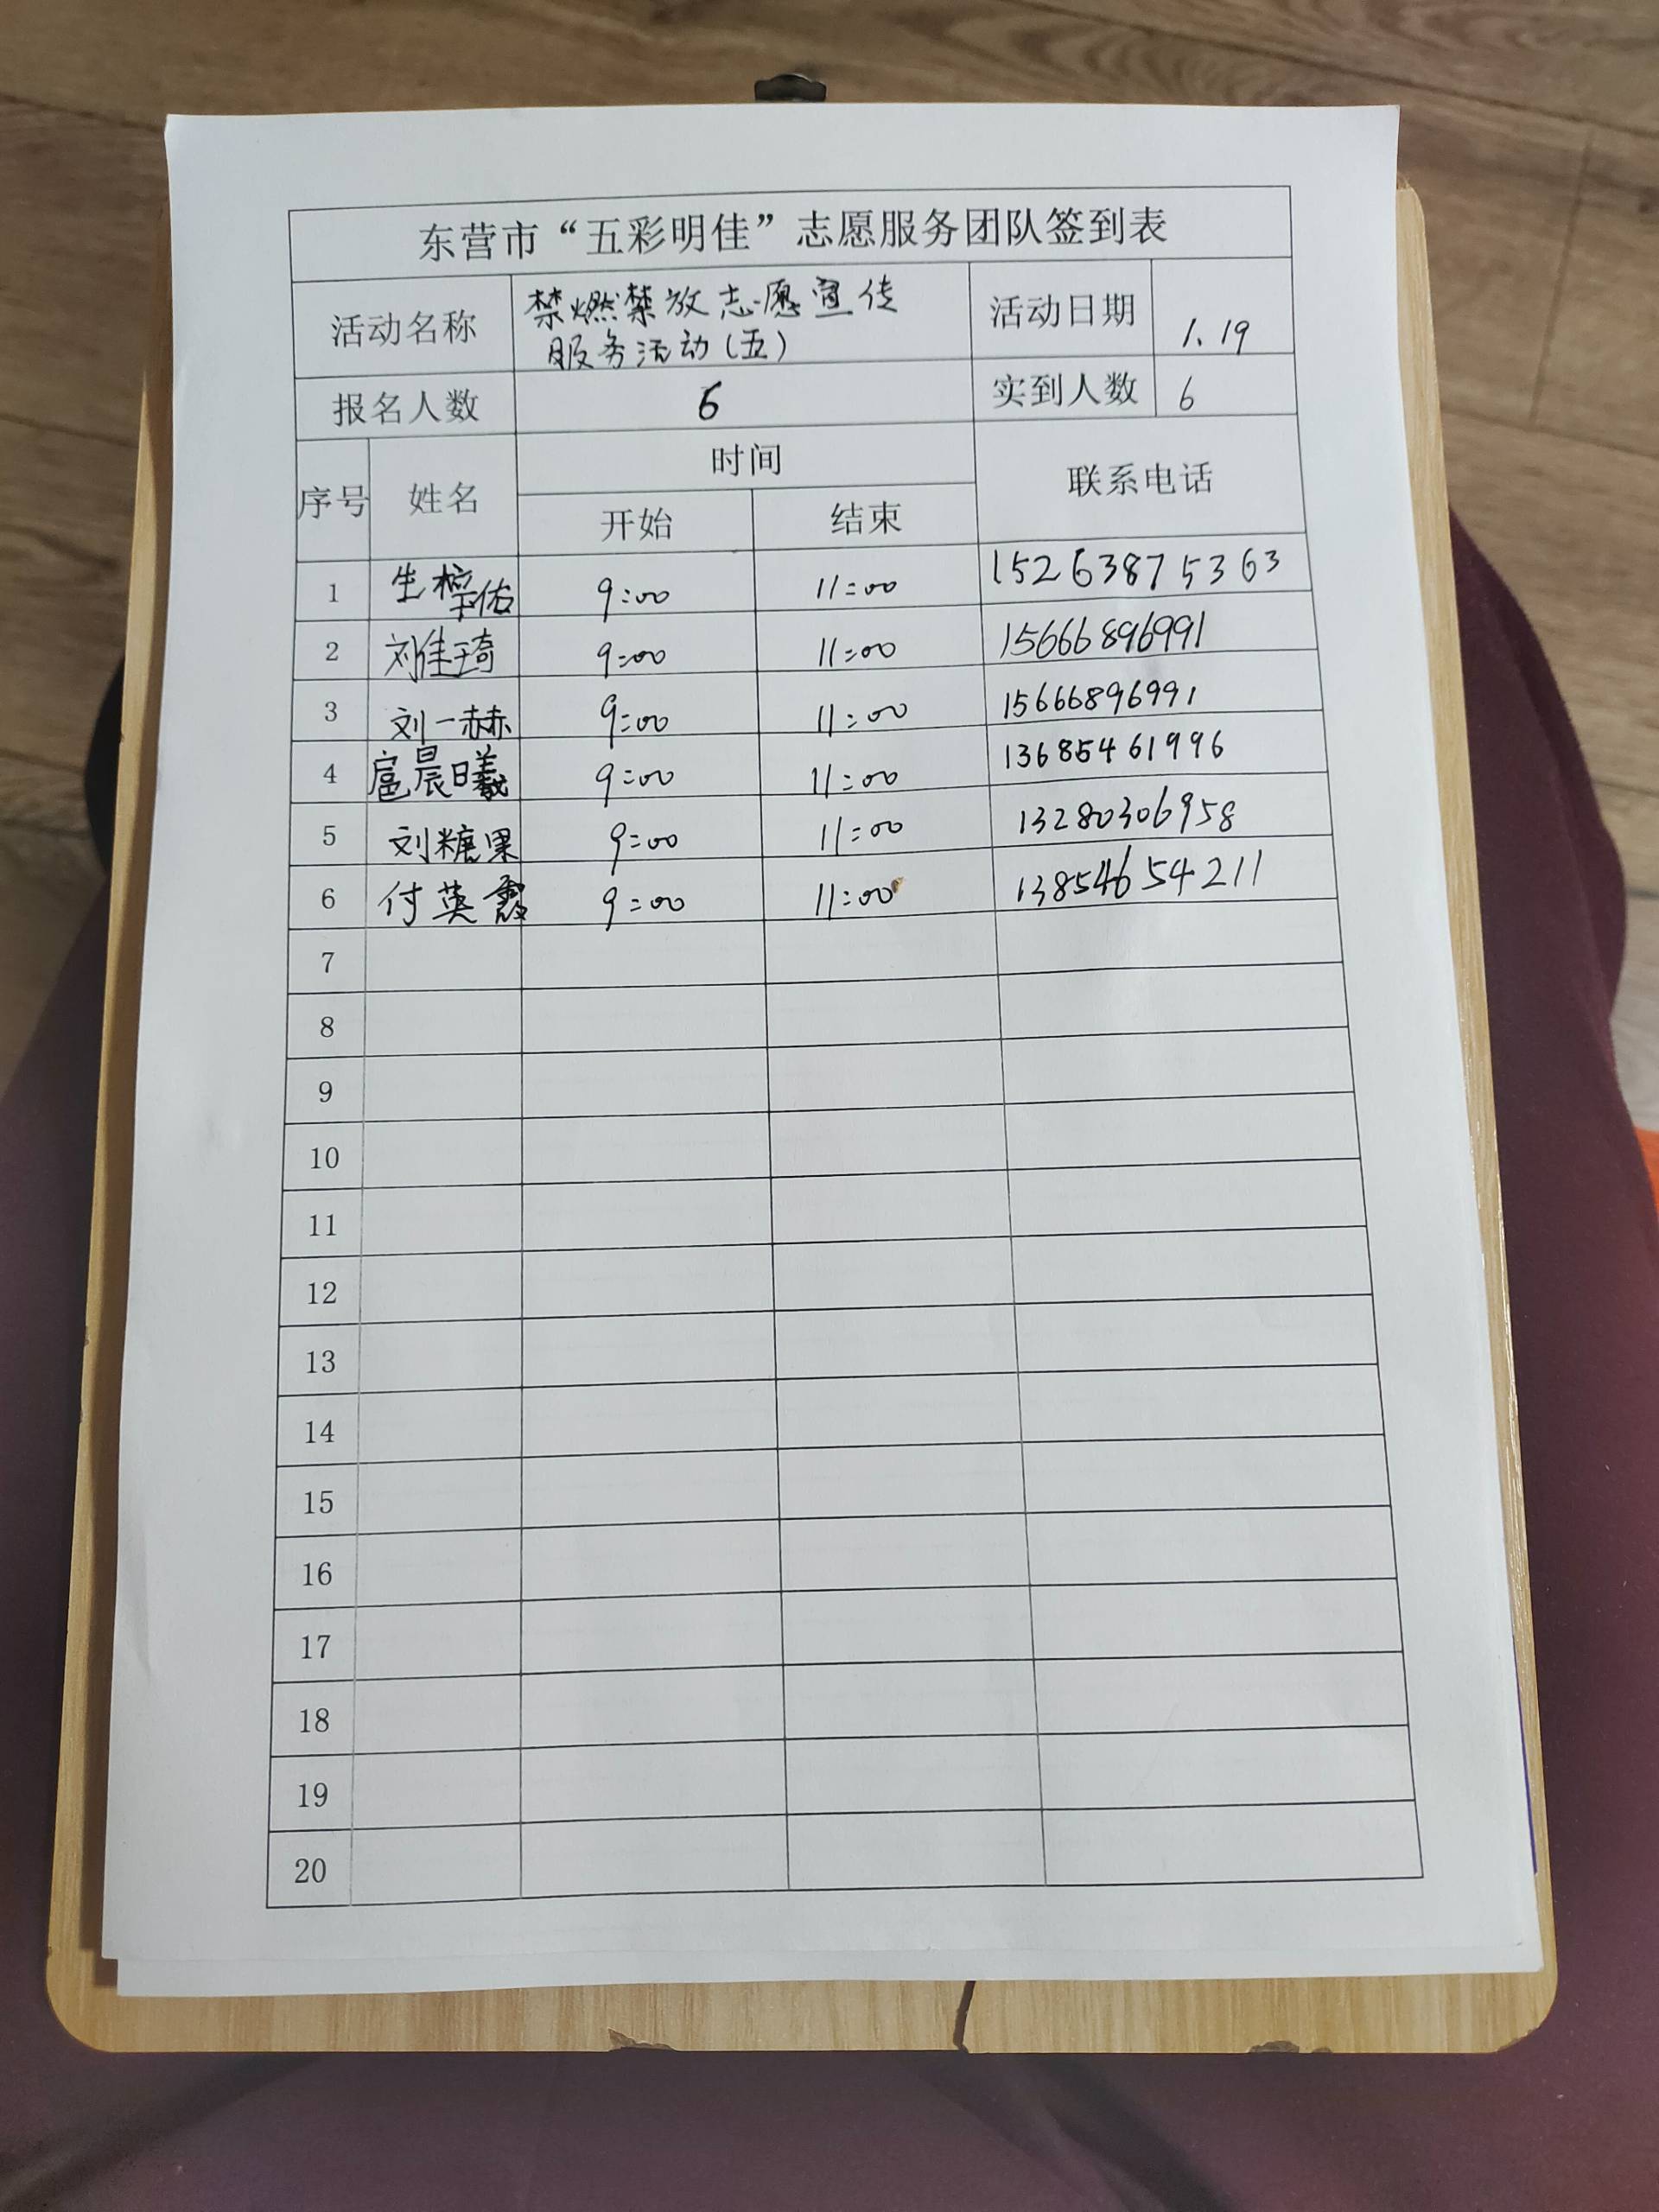 东营市“五彩明佳”志愿服务团队签到表
活动名称 禁燃禁放志愿宣传 活动日期 1.19
服务活动(五)
报名人数 6 实到人数 6
序号 姓名 时间 联系电话
开始 结束
1 生 佑 9:00 11:00 15263875363
2 刘佳琦 9:00 11:00 15666896991
3 刘一赫 9:00 11:00 15666896991
4 扈晨曦 9:00 11:00 13685461996
5 刘糖果 9:00 11:00 13280306958
6 付英霞 9:00 11:00 13854654211
7
8
9
10
11
12
13
14
15
16
17
18
19
20